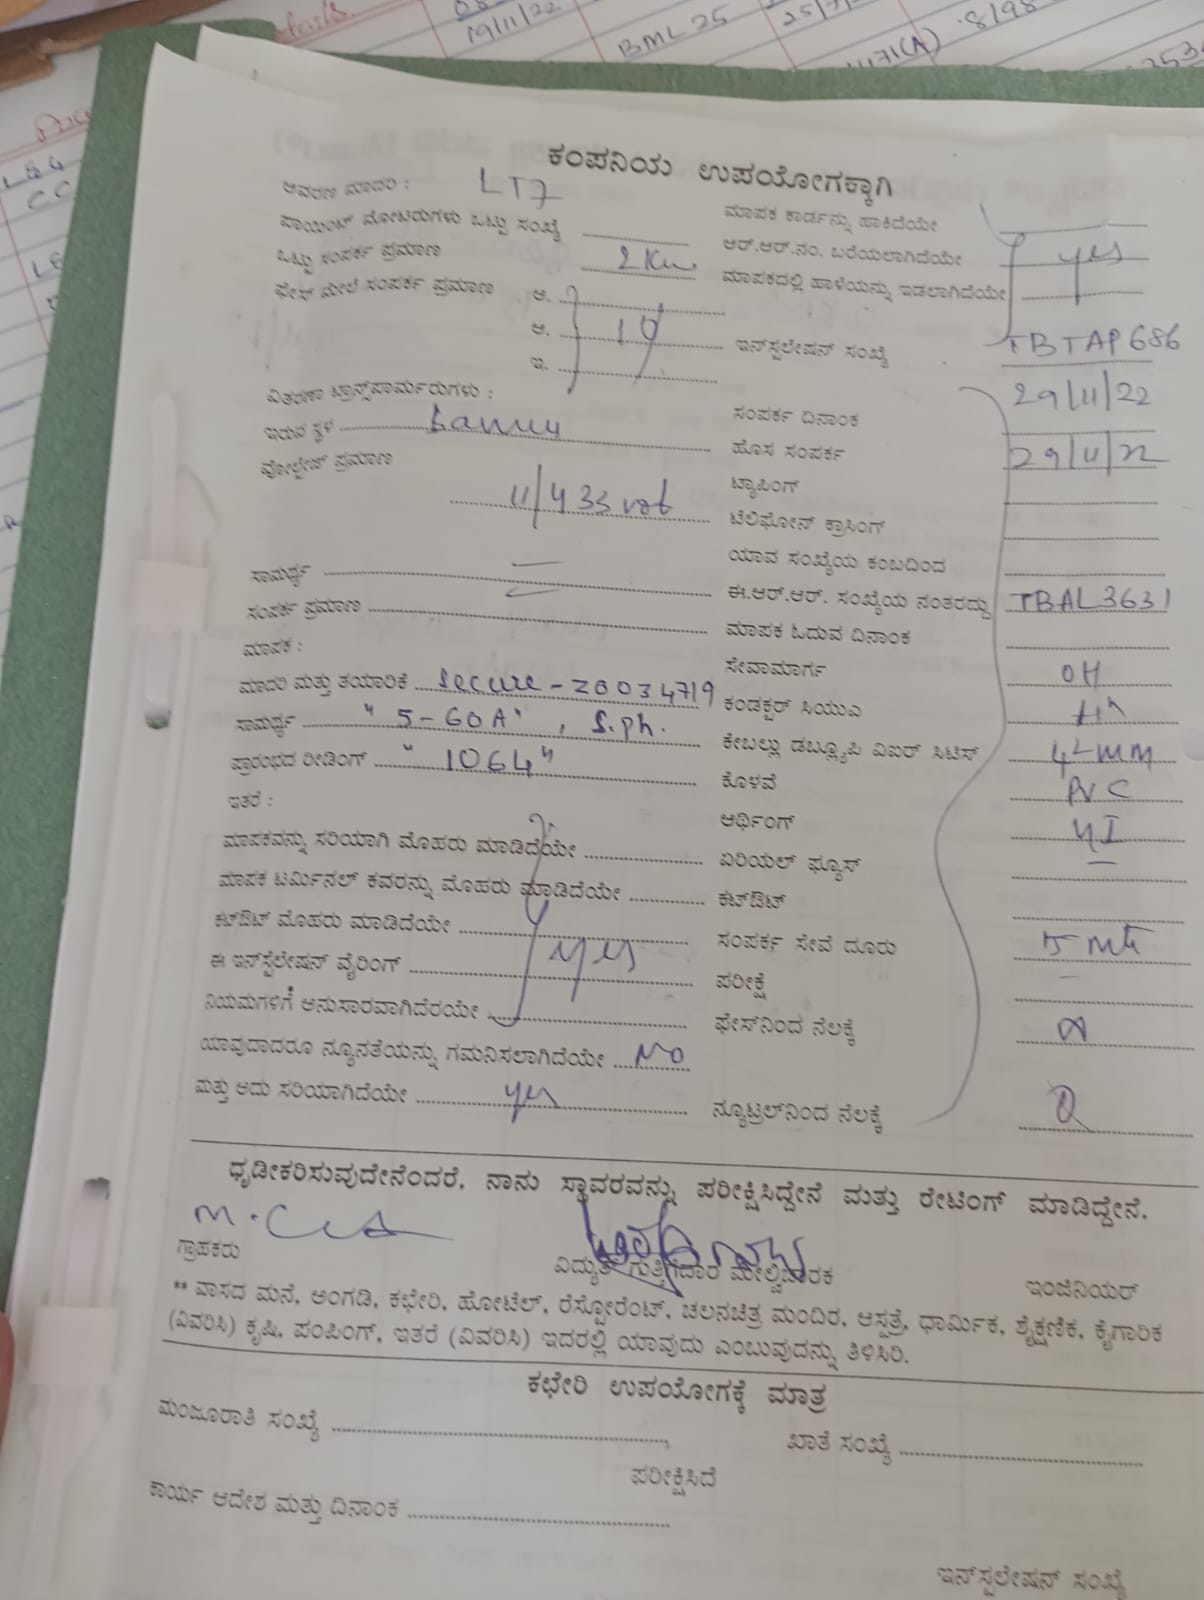 19/11/22
BML 25
171(A)
8/98
ಕಂಪನಿಯ ಉಪಯೋಗಕ್ಕಾಗಿ
ಆವರಣ ಮಾದರಿ : LT7
ಮಾಪಕ ಕಾರ್ಡನ್ನು ಹಾಕಿದೆಯೇ
ಪಾಯಿಂಟ್ ಮೋಟರುಗಳು ಒಟ್ಟು ಸಂಖ್ಯೆ
ಆರ್.ಆರ್.ನಂ. ಬರೆಯಲಾಗಿದೆಯೇ yes
ಒಟ್ಟು ಸಂಪರ್ಕ ಪ್ರಮಾಣ 2 Kw
ಮಾಪಕದಲ್ಲಿ ಹಾಳೆಯನ್ನು ಇಡಲಾಗಿದೆಯೇ
ಫೇಸ್ ಮೇಲೆ ಸಂಪರ್ಕ ಪ್ರಮಾಣ ಅ.
ಆ. 10
ಇನ್‌ಸ್ಟಲೇಷನ್ ಸಂಖ್ಯೆ TBTAP686
ಇ.
ವಿತರಣಾ ಟ್ರಾನ್ಸ್‌ಪಾರ್ಮರುಗಳು :
ಸಂಪರ್ಕ ದಿನಾಂಕ 29/11/22
ಇರುವ ಸ್ಥಳ
ಹೊಸ ಸಂಪರ್ಕ 29/11/22
ವೋಲ್ಟೇಜ್ ಪ್ರಮಾಣ 11/433 vol
ಟ್ಯಾಪಿಂಗ್
ಟೆಲಿಫೋನ್ ಕ್ರಾಸಿಂಗ್
ಯಾವ ಸಂಖ್ಯೆಯ ಕಂಬದಿಂದ
ಸಾಮರ್ಥ್ಯ
ಈ.ಆರ್.ಆರ್. ಸಂಖ್ಯೆಯ ನಂತರದ್ದು TBAL3631
ಸಂಪರ್ಕ ಪ್ರಮಾಣ
ಮಾಪಕ ಓದುವ ದಿನಾಂಕ
ಮಾಪಕ :
ಸೇವಾಮಾರ್ಗ OH
ಮಾದರಿ ಮತ್ತು ತಯಾರಿಕೆ Secure - Z0034719
ಕಂಡಕ್ಟರ್ ಸಿಯುಎ
ಸಾಮರ್ಥ್ಯ " 5-60A" , S.ph.
ಕೇಬಲ್ಲು ಡಬ್ಲ್ಯೂಪಿ ವಿಐರ್ ಸಿಟಿಸ್ 4 mm
ಪ್ರಾರಂಭದ ರೀಡಿಂಗ್ " 1064 "
ಕೊಳವೆ PVC
ಇತರೆ :
ಆರ್ಥಿಂಗ್
ಮಾಪಕವನ್ನು ಸರಿಯಾಗಿ ಮೊಹರು ಮಾಡಿದೆಯೇ
ಏರಿಯಲ್ ಫ್ಯೂಸ್
ಮಾಪಕ ಟರ್ಮಿನಲ್ ಕವರನ್ನು ಮೊಹರು ಮಾಡಿದೆಯೇ
ಕಟ್‌ಔಟ್
ಕಟ್‌ಔಟ್ ಮೊಹರು ಮಾಡಿದೆಯೇ
ಸಂಪರ್ಕ ಸೇವೆ ದೂರು 5 mt
ಈ ಇನ್‌ಸ್ಟೆಲೇಷನ್ ವೈರಿಂಗ್ yes
ಪರೀಕ್ಷೆ
ನಿಯಮಗಳಿಗೆ ಅನುಸಾರವಾಗಿದೆರಯೇ
ಫೇಸ್‌ನಿಂದ ನೆಲಕ್ಕೆ
ಯಾವುದಾದರೂ ನ್ಯೂನತೆಯನ್ನು ಗಮನಿಸಲಾಗಿದೆಯೇ No
ಮತ್ತು ಅದು ಸರಿಯಾಗಿದೆಯೇ yes
ನ್ಯೂಟ್ರಲ್‌ನಿಂದ ನೆಲಕ್ಕೆ
ಧೃಡೀಕರಿಸುವುದೇನೆಂದರೆ, ನಾನು ಸ್ಥಾವರವನ್ನು ಪರೀಕ್ಷಿಸಿದ್ದೇನೆ ಮತ್ತು ರೇಟಿಂಗ್ ಮಾಡಿದ್ದೇನೆ.
ಗ್ರಾಹಕರು
ವಿದ್ಯುತ್ ಗುತ್ತಿಗೆದಾರ ಮೇಲ್ವಿಚಾರಕ
ಇಂಜಿನಿಯರ್
** ವಾಸದ ಮನೆ, ಅಂಗಡಿ, ಕಛೇರಿ, ಹೋಟೆಲ್, ರೆಸ್ಟೋರೆಂಟ್, ಚಲನಚಿತ್ರ ಮಂದಿರ, ಆಸ್ಪತ್ರೆ, ಧಾರ್ಮಿಕ, ಶೈಕ್ಷಣಿಕ, ಕೈಗಾರಿಕ
(ವಿವರಿಸಿ) ಕೃಷಿ, ಪಂಪಿಂಗ್, ಇತರೆ (ವಿವರಿಸಿ) ಇದರಲ್ಲಿ ಯಾವುದು ಎಂಬುವುದನ್ನು ತಿಳಿಸಿರಿ.
ಕಛೇರಿ ಉಪಯೋಗಕ್ಕೆ ಮಾತ್ರ
ಮಂಜೂರಾತಿ ಸಂಖ್ಯೆ
ಖಾತೆ ಸಂಖ್ಯೆ
ಪರೀಕ್ಷಿಸಿದೆ
ಕಾರ್ಯ ಆದೇಶ ಮತ್ತು ದಿನಾಂಕ
ಇನ್‌ಸ್ಟಲೇಷನ್ ಸಂಖ್ಯೆ